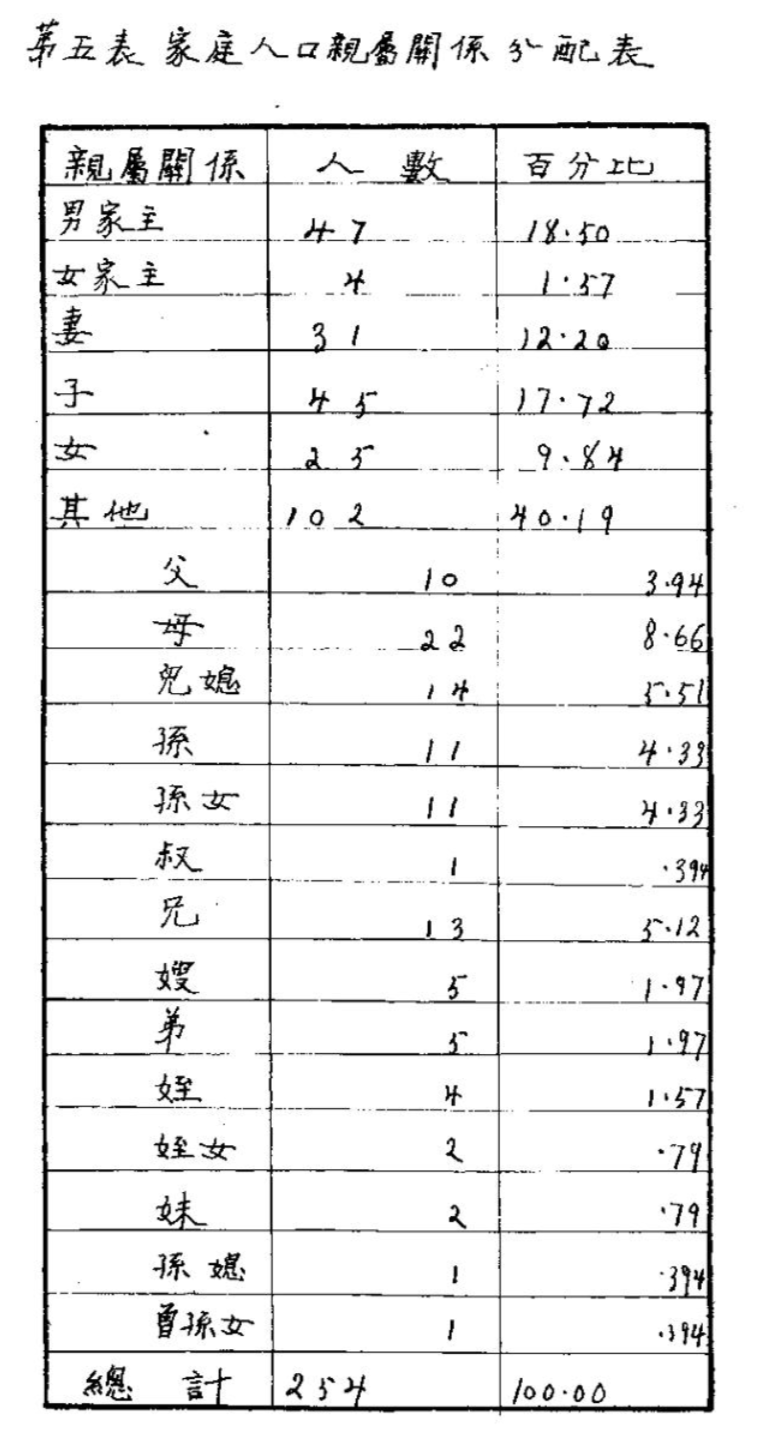 第五表 家庭人口親屬關係分配表
親屬關係 人數 百分比
男家主 47 18.50
女家主 4 1.57
妻 31 12.20
子 45 17.72
女 25 9.84
其他 102 40.19
父 10 3.94
母 22 8.66
兒媳 14 5.51
孫 11 4.33
孫女 11 4.33
叔 1 .394
兄 13 5.12
嫂 5 1.97
弟 5 1.97
姪 4 1.57
姪女 2 .79
妹 2 .79
孫媳 1 .394
曾孫女 1 .394
總計 254 100.00